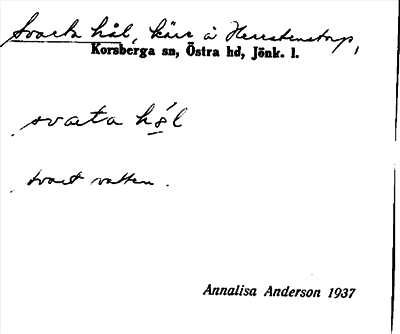 Svarta hål, kärr å Herrstenstorp,
Korsberga sn, Östra hd, Jönk. l.
svata hål
svart vatten.
Annalisa Anderson 1937